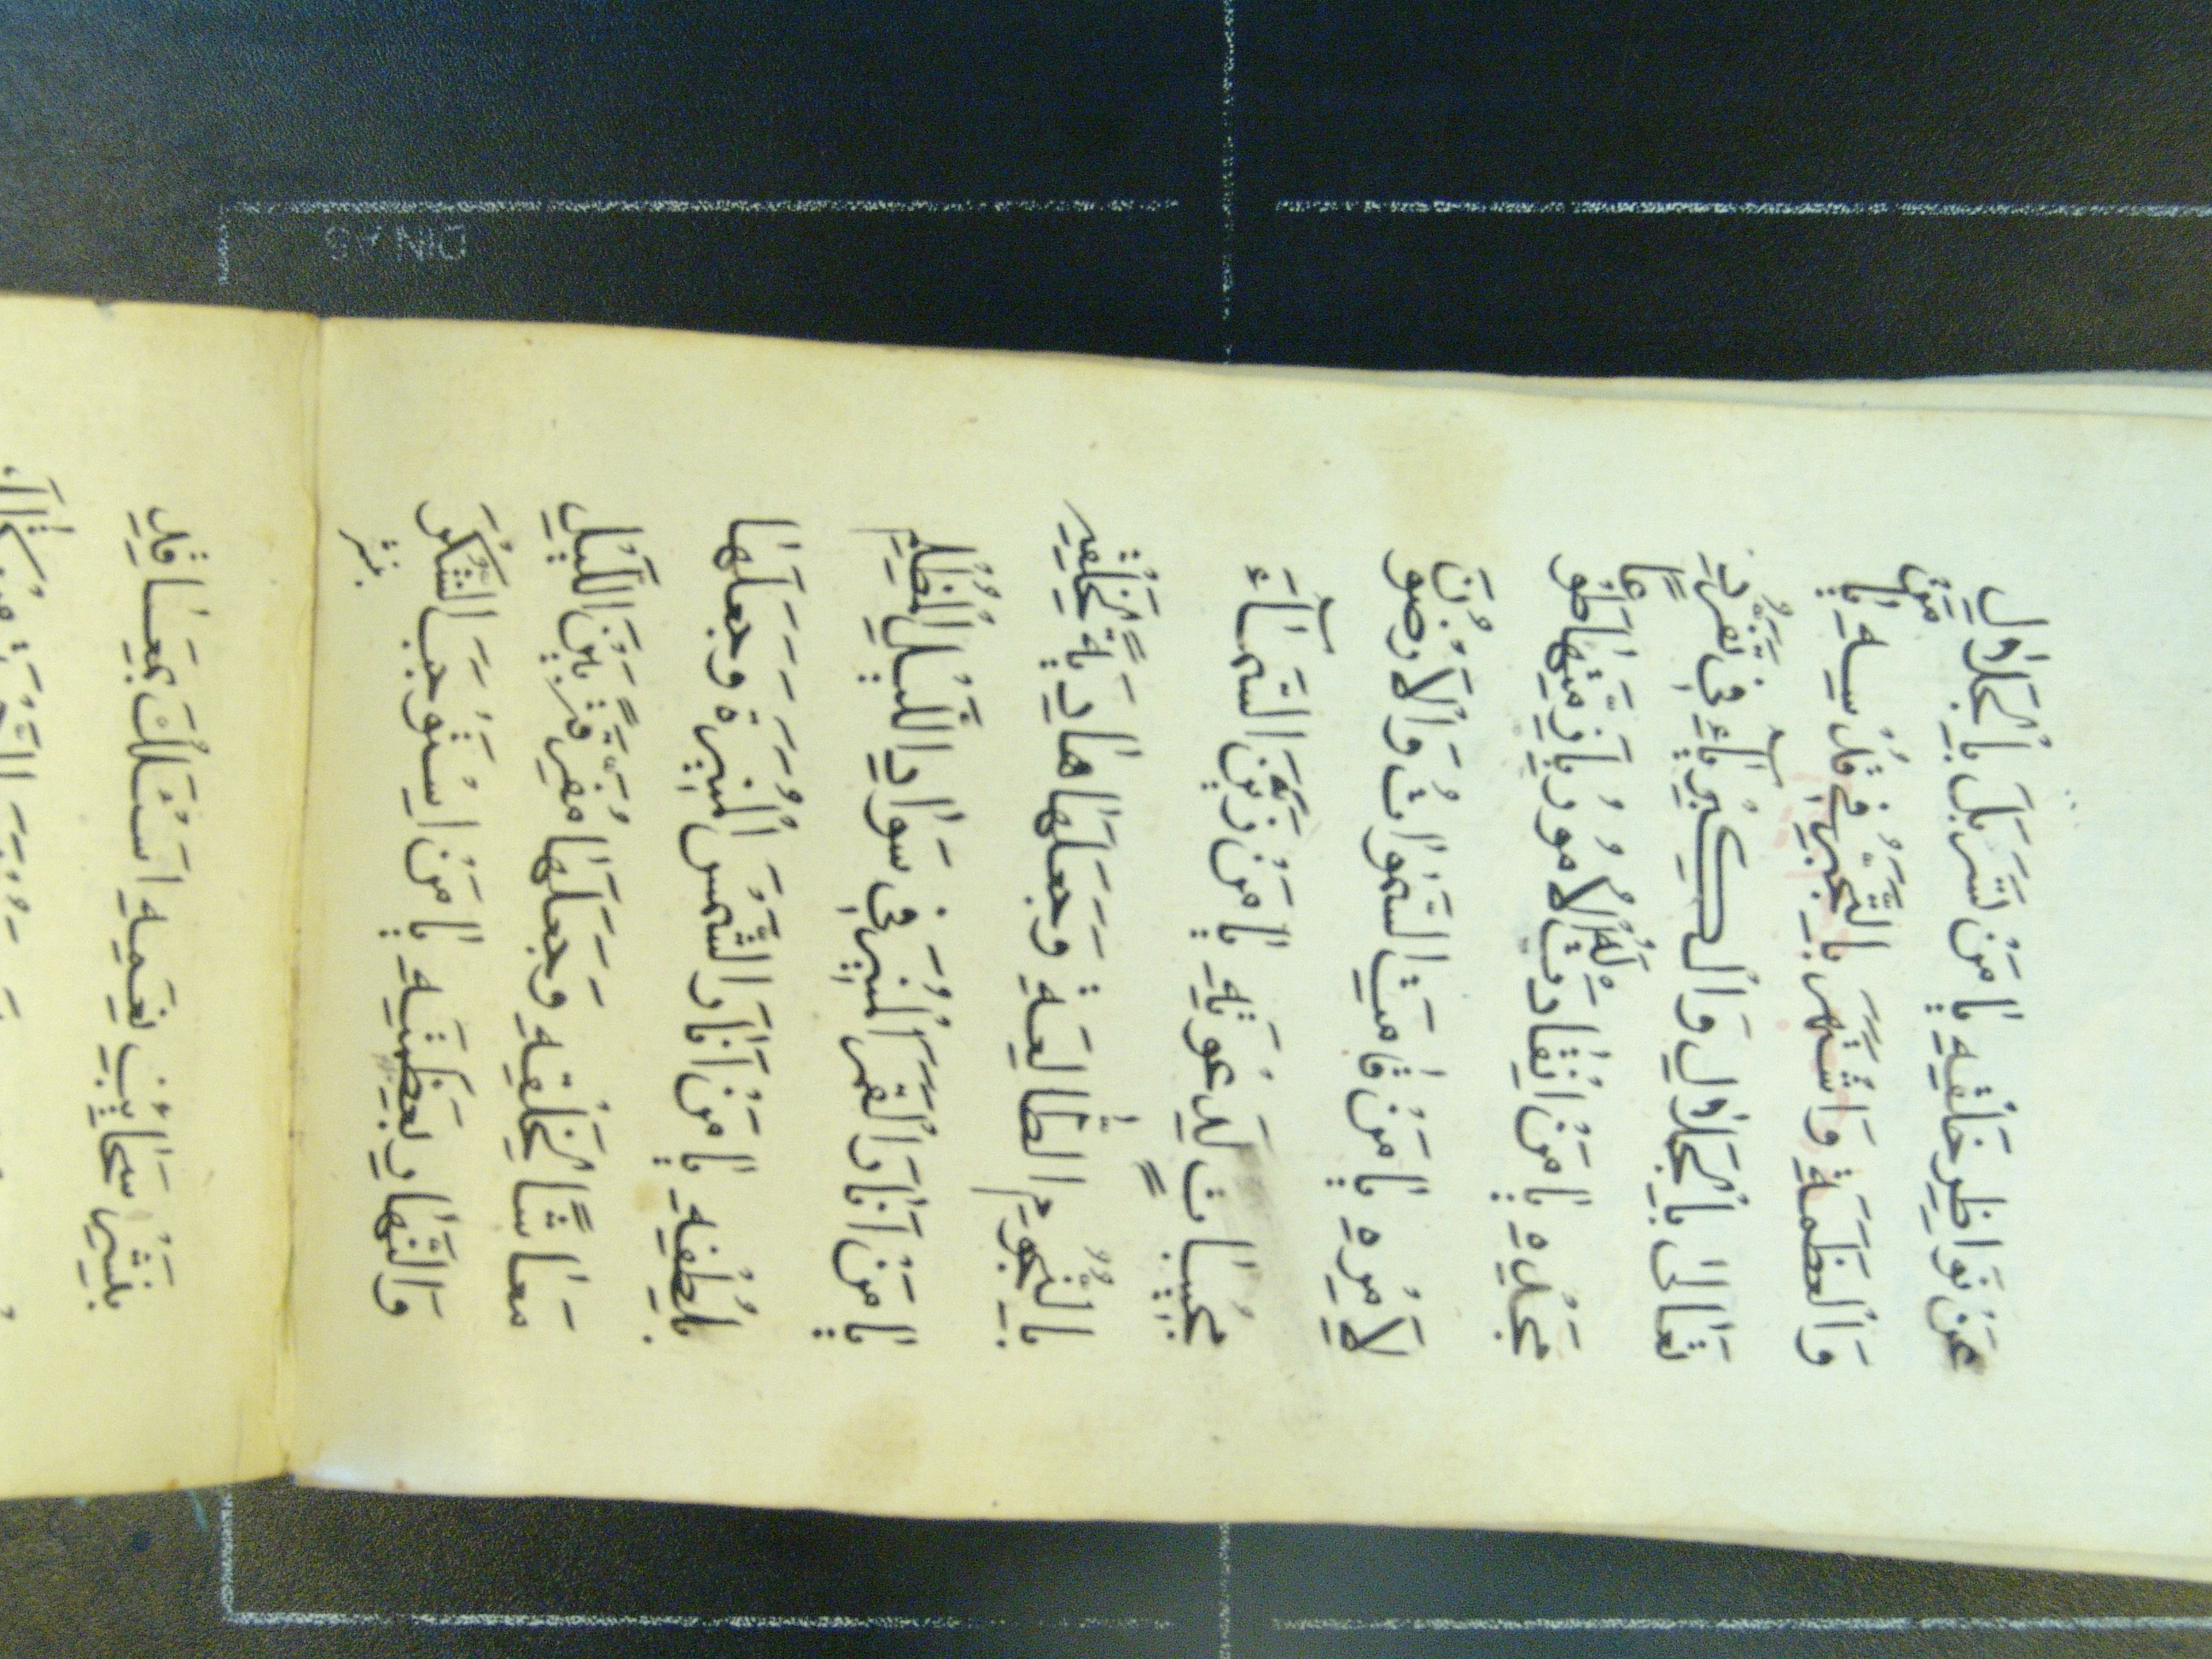 عَنْ نَوَاظِرِ خَلْقِهِ يَا مَنْ تَسَرْبَلَ بِالْجَلَالِ
وَالْعَظَمَةِ وَاشْتَهَرَ بِالتَّجَبُّرِ فِي قُدْسِهِ يَا مَنْ
تَعَالَى بِالْجَلَالِ وَالْكِبْرِيَاءِ فِي تَفَرُّدِ
مَجْدِهِ يَا مَنِ انْقَادَتْ لَهُ الْأُمُورُ بِأَزِمَّتِهَا طَوْعًا
لِأَمْرِهِ يَا مَنْ قَامَتِ السَّمَوَاتُ وَالْأَرَضُونَ
مُجِيبَاتٍ لِدَعْوَتِهِ يَا مَنْ زَيَّنَ السَّمَاءَ
بِالنُّجُومِ الطَّالِعَةِ وَجَعَلَهَا هَادِيَةً لِخَلْقِهِ
يَا مَنْ أَنَارَ الْقَمَرَ الْمُنِيرَ فِي سَوَادِ اللَّيْلِ الْمُظْلِمِ
بِلُطْفِهِ يَا مَنْ أَنَارَ الشَّمْسَ الْمُنِيرَةَ وَجَعَلَهَا
مَعَاشًا لِخَلْقِهِ وَجَعَلَهَا مُفَرِّقَةً بَيْنَ اللَّيْلِ
وَالنَّهَارِ بِعَظَمَتِهِ يَا مَنِ اسْتَوْجَبَ الشُّكْرَ
بنشر
بِنَشْرِ سَحَائِبِ نِعَمِهِ اَسْئَلُكَ بِمَعَاقِدِ